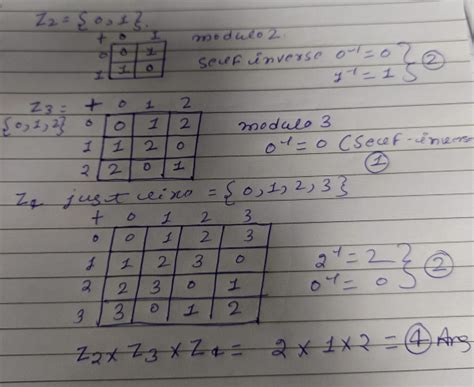 Z2 = {0, 1}.
+ 0 1 modulo 2.
0 0 1 self inverse 0⁻¹ = 0
1 1 0 1⁻¹ = 1 } ②
Z3 = + 0 1 2
{0, 1, 2} 0 0 1 2 modulo 3
1 1 2 0 0⁻¹ = 0 (self-inverse
2 2 0 1 ①
Z4 just = {0, 1, 2, 3}
+ 0 1 2 3
0 0 1 2 3
1 1 2 3 0 2⁻¹ = 2
2 2 3 0 1 0⁻¹ = 0 } ②
3 3 0 1 2
Z2 × Z3 × Z4 = 2 × 1 × 2 = ④ Ans